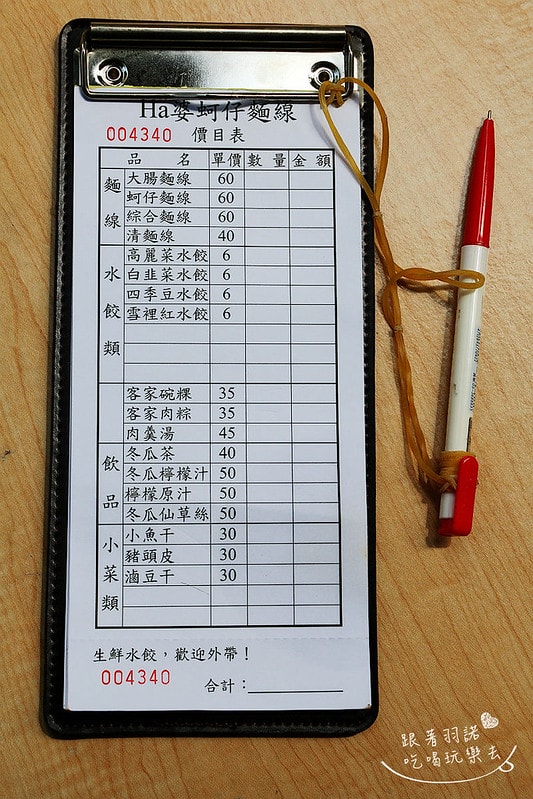 Ha婆蚵仔麵線
004340 價目表
品 名 單價 數 量 金 額
麵線
大腸麵線 60
蚵仔麵線 60
綜合麵線 60
清麵線 40
水餃類
高麗菜水餃 6
白韭菜水餃 6
四季豆水餃 6
雪裡紅水餃 6
客家碗粿 35
客家肉粽 35
肉羹湯 45
飲品
冬瓜茶 40
冬瓜檸檬汁 50
檸檬原汁 50
冬瓜仙草絲 50
小菜類
小魚干 30
豬頭皮 30
滷豆干 30
生鮮水餃，歡迎外帶！
004340
合計：
跟著羽諾
吃喝玩樂去